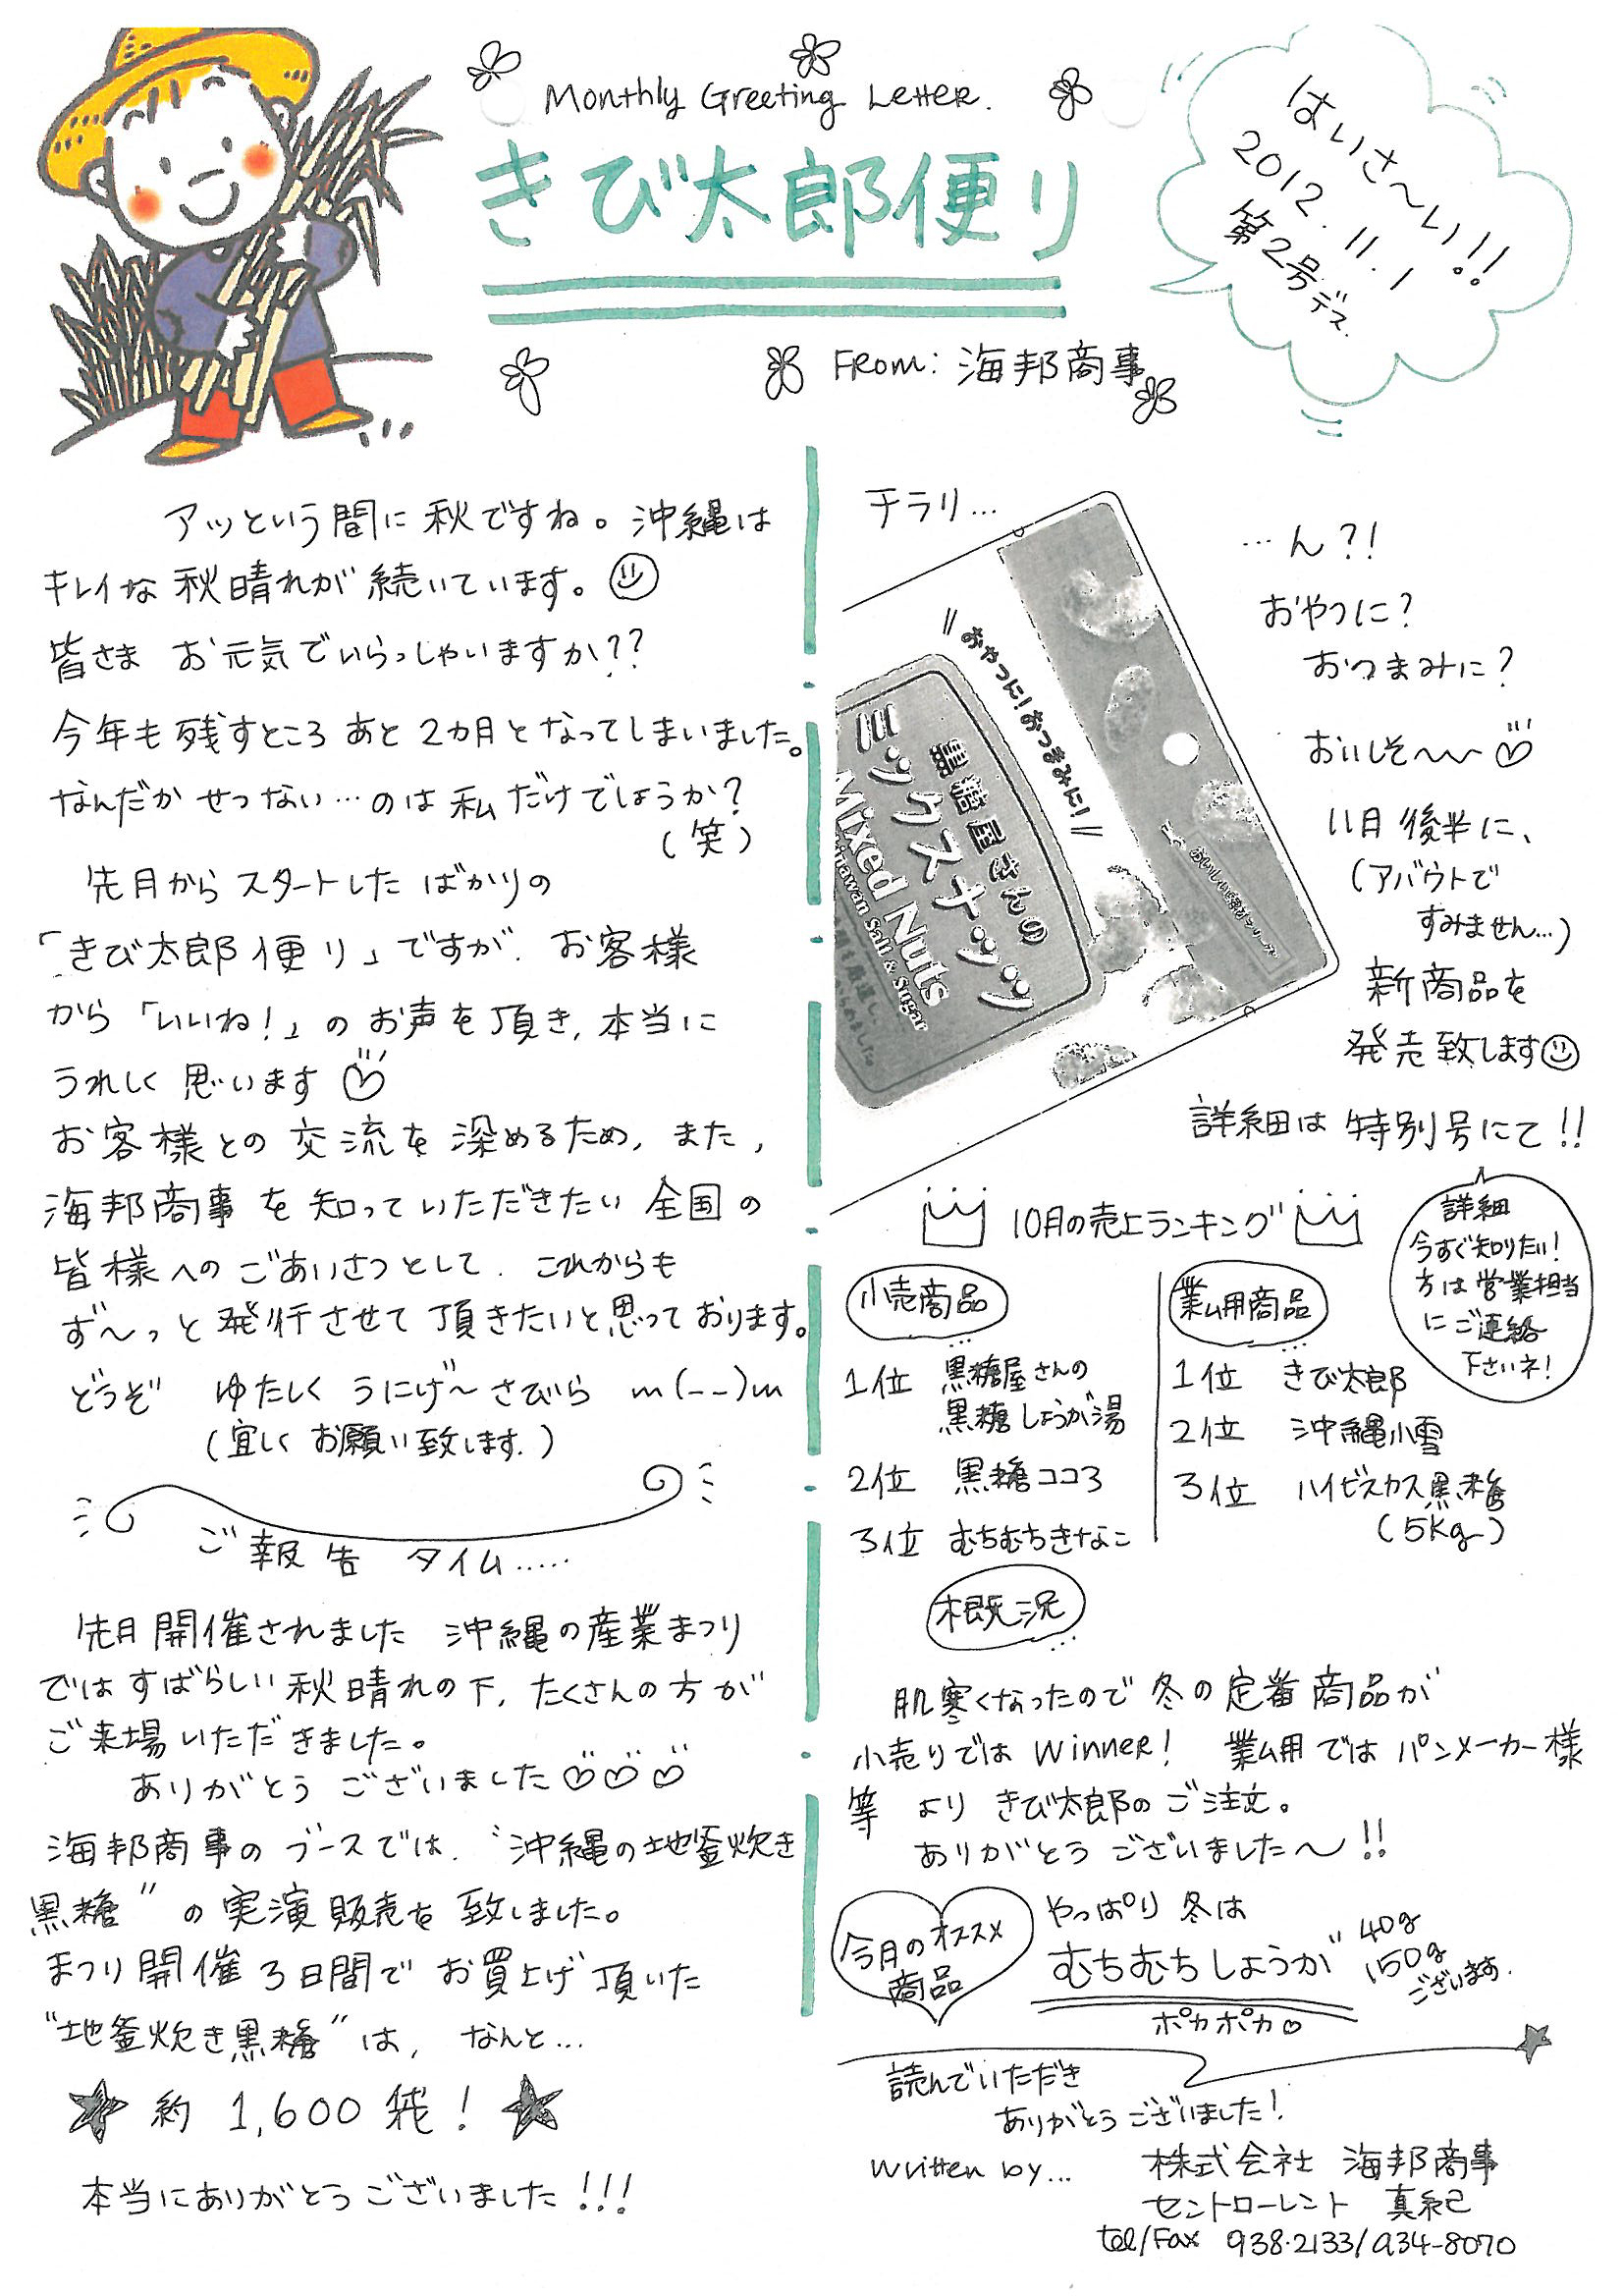 Monthly Greeting Letter.
きび太郎便り
From: 海邦商事
はいさ〜い!!
2012.11.1
第2号デス.
アッという間に秋ですね。沖縄は
キレイな秋晴れが続いています。
皆さま お元気でいらっしゃいますか??
今年も残すところあと2カ月となってしまいました。
なんだか せつない…のは私だけでしょうか?
(笑)
先月からスタートしたばかりの
「きび太郎便り」ですが、お客様
から「いいね!」のお声を頂き、本当に
うれしく思います
お客様との交流を深めるため、また、
海邦商事を知っていただきたい全国の
皆様へのごあいさつとして、これからも
ず〜っと発行させて頂きたいと思っております。
どうぞ ゆたしく うにげ〜さびら m(--)m
(宜しくお願い致します.)
ご報告 タイム.....
先月開催されました 沖縄の産業まつり
ではすばらしい秋晴れの下、たくさんの方が
ご来場いただきました。
ありがとう ございました
海邦商事のブースでは、"沖縄の地釜炊き
黒糖"の実演販売を致しました。
まつり開催3日間でお買上げ頂いた
"地釜炊き黒糖"は、なんと…
約 1,600袋!
本当にありがとうございました!!!
チラリ…
おやつに!おつまみに!
黒糖屋さんの
ミックスナッツ
Mixed Nuts
Salt & Sugar
…ん?!
おやつに?
おつまみに?
おいしそ〜〜
11月後半に、
(アバウトで
すみません…)
新商品を
発売致します
詳細は特別号にて!!
詳細
今すぐ知りたい!
方は営業担当
にご連絡
下さいネ!
10月の売上ランキング
小売商品
1位 黒糖屋さんの
黒糖しょうが湯
2位 黒糖ココア
3位 むちむちきなこ
業ム用商品
1位 きび太郎
2位 沖縄小雪
3位 ハイビスカス黒糖
(5Kg)
概況
肌寒くなったので冬の定番商品が
小売りではWinner! 業ム用ではパンメーカー様
等 より きび太郎のご注文。
ありがとう ございました〜!!
今月のオススメ
商品
やっぱり 冬は
むちむちしょうが
40g
150g
ございます.
ポカポカ
読んでいただき
ありがとうございました!
written by…
株式会社 海邦商事
セントローレント 真紀
tel/Fax 938-2133/934-8070